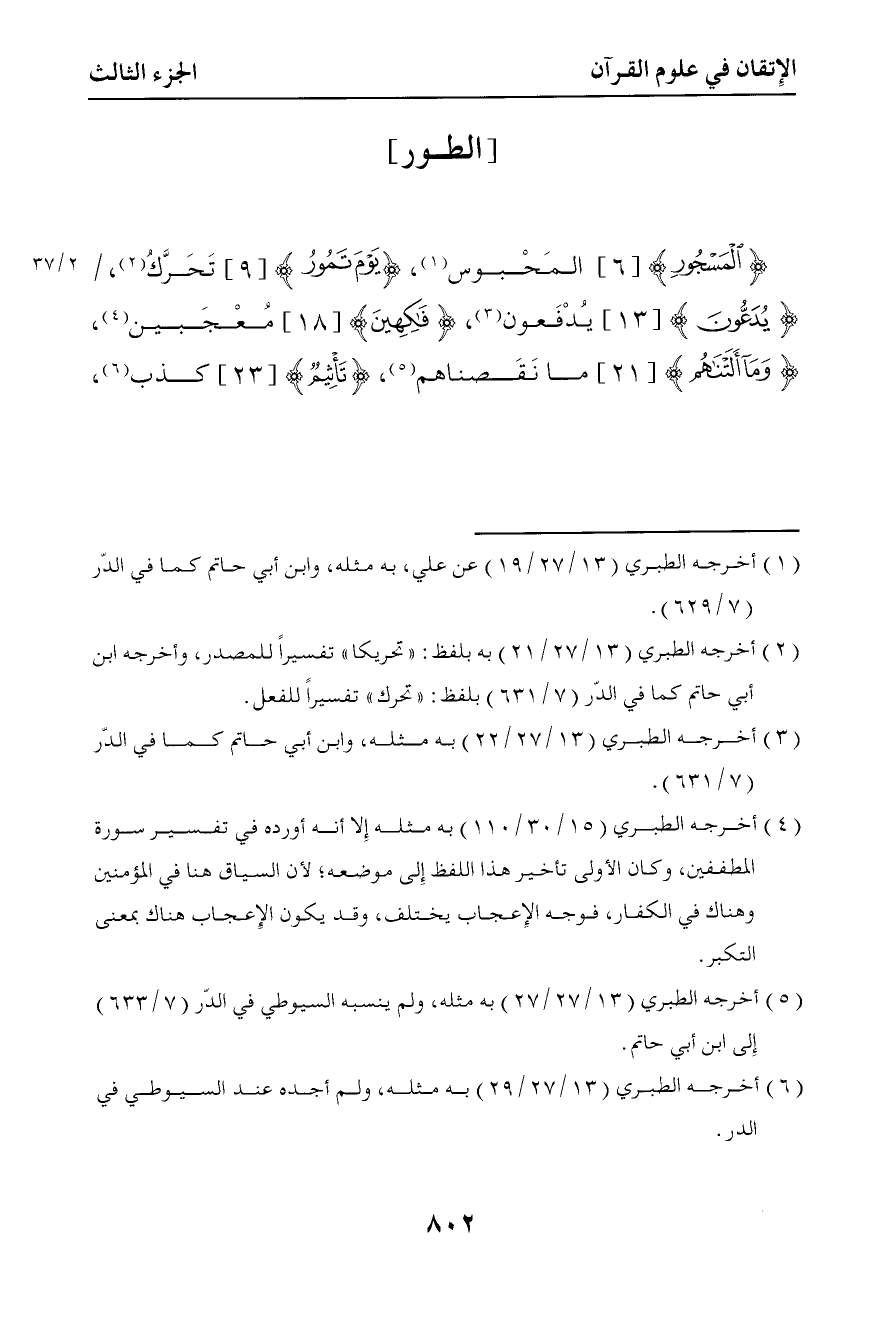 الإتقان في علوم القرآن الجزء الثالث
[الطور]
﴿ ٱلْمَسْجُورِ ﴾ [٦] المَحْبوس(١)، ﴿يَوْمَ تَمُورُ ﴾ [٩] تَحَرَّكُ(٢)، / ٣٧/٢
﴿ يُدَعُّونَ ﴾ [١٣] يُدْفَعون(٣)، ﴿ فَاكِهِينَ﴾ [١٨] مُعْجَبين(٤)،
﴿ وَمَآ أَلَتْنَاهُم ﴾ [٢١] ما نَقَصناهم(٥)، ﴿تَأْثِيمٌ﴾ [٢٣] كذب(٦)،
(١) أخرجه الطبري (١٣/ ٢٧/ ١٩) عن علي، به مثله، وابن أبي حاتم كما في الدّر
(٧/ ٦٢٩).
(٢) أخرجه الطبري (١٣/ ٢٧/ ٢١) به بلفظ: «تحريكا» تفسيراً للمصدر، وأخرجه ابن
أبي حاتم كما في الدّر (٧/ ٦٣١) بلفظ: «تحرك» تفسيراً للفعل.
(٣) أخرجه الطبري (١٣/ ٢٧/ ٢٢) به مثله، وابن أبي حاتم كما في الدّر
(٧/ ٦٣١).
(٤) أخرجه الطبري (١٥/ ٣٠/ ١١٠) به مثله إلا أنه أورده في تفسير سورة
المطففين، وكان الأولى تأخير هذا اللفظ إلى موضعه؛ لأن السياق هنا في المؤمنين
وهناك في الكفار، فوجه الإعجاب يختلف، وقد يكون الإعجاب هناك بمعنى
التكبر.
(٥) أخرجه الطبري (١٣/ ٢٧/ ٢٧) به مثله، ولم ينسبه السيوطي في الدّر (٧/ ٦٣٣)
إلى ابن أبي حاتم.
(٦) أخرجه الطبري (١٣/ ٢٧/ ٢٩) به مثله، ولم أجده عند السيوطي في
الدر.
٨٠٢